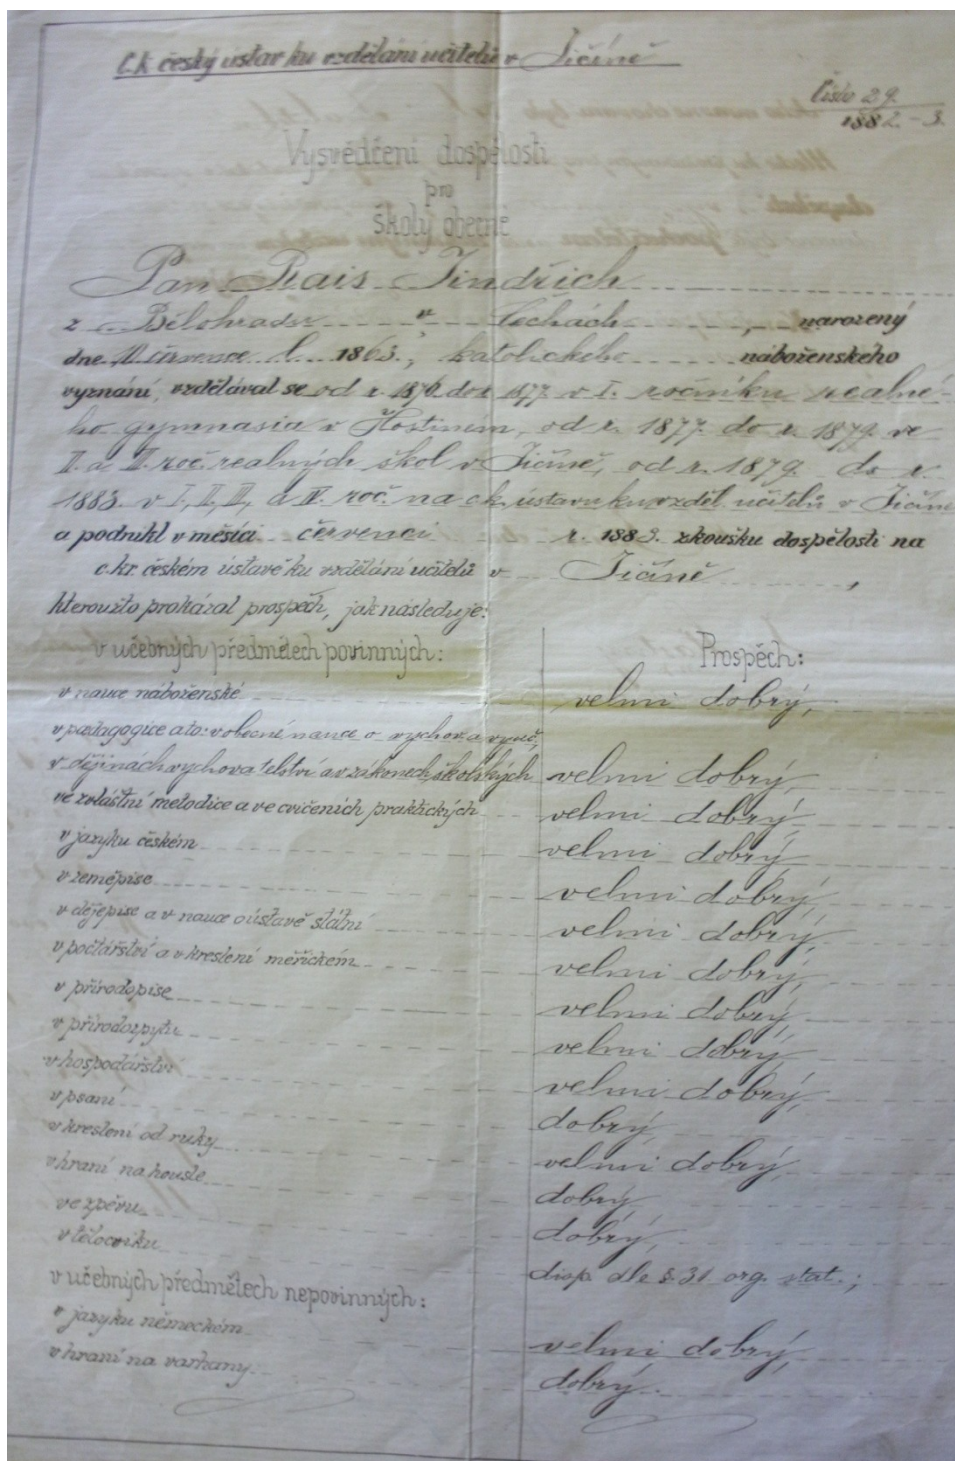 C.k. český ústav ku vzdělání učitelů v Jičíně
Číslo 29.
1882.-3.
Vysvědčení dospělosti
pro
školy obecné
Pan Rais Jindřich
z Bělohradu v Čechách, narozený
dne, II. července l. 1863., katolického náboženského
vyznání, vzdělával se od r. 1876 do r. 1877. v I. ročníku reálné-
ho gymnasia v Hostinném, od r. 1877. do r. 1879. ve
II. a III. roč. reálných škol v Jičíně, od r. 1879. do r.
1883. v I., II., III., a IV. roč. na c.k. ústavu ku vzděl. učitelů v Jičíně
a podnikl v měsíci červenci r. 1883. zkoušku dospělosti na
c. kr. českém ústavě ku vzdělání učitelů v Jičíně,
kteroužto prokázal prospěch, jak následuje:
v učebných předmětech povinných: Prospěch:
v nauce náboženské velmi dobrý,
v pædagogice a to: v obecné nauce o vychov. a vyuč.,
v dějinách vychovatelství a v zákonech školských velmi dobrý,
ve zvláštní metodice a ve cvičeních praktických velmi dobrý,
v jazyku českém velmi dobrý,
v zeměpise velmi dobrý,
v dějepise a v nauce o ústavě státní velmi dobrý,
v počtářství a v kreslení měřickém velmi dobrý,
v přírodopise velmi dobrý,
v přírodozpytu velmi dobrý,
v hospodářství velmi dobrý,
v psaní dobrý,
v kreslení od ruky velmi dobrý,
v hraní na housle dobrý,
ve zpěvu dobrý,
v tělocviku disp. dle §. 31. org. stat.;
v učebných předmětech nepovinných:
v jazyku německém velmi dobrý,
v hraní na varhany dobrý.